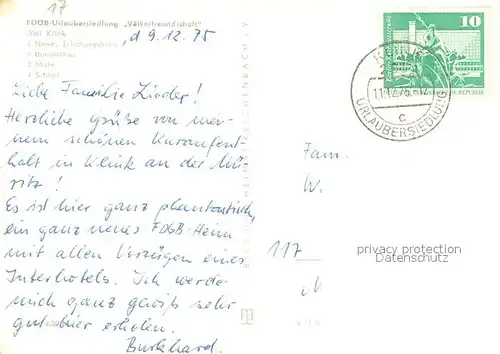 17
FDGB-Urlaubersiedlung „Völkerfreundschaft"
2061 Klink
, d 9.12.75
2 Bungalows
3 Mole
4 Schloß
Liebe Familie Zieder!
Herzliche Grüße von mei-
nem schönen Kuraufent-
halt in Klink an der Mü-
ritz!
Es ist hier ganz phantastisch,
ein ganz neues FDGB-Heim
mit allen Vorzügen eines
Interhotels. Ich werde
mich ganz gewiß sehr
gut hier erholen.
Burkhard.
10
KLINK
11.12.75
c
URLAUBERSIEDLUNG
Fam.
W.
117
privacy protection
Datenschutz